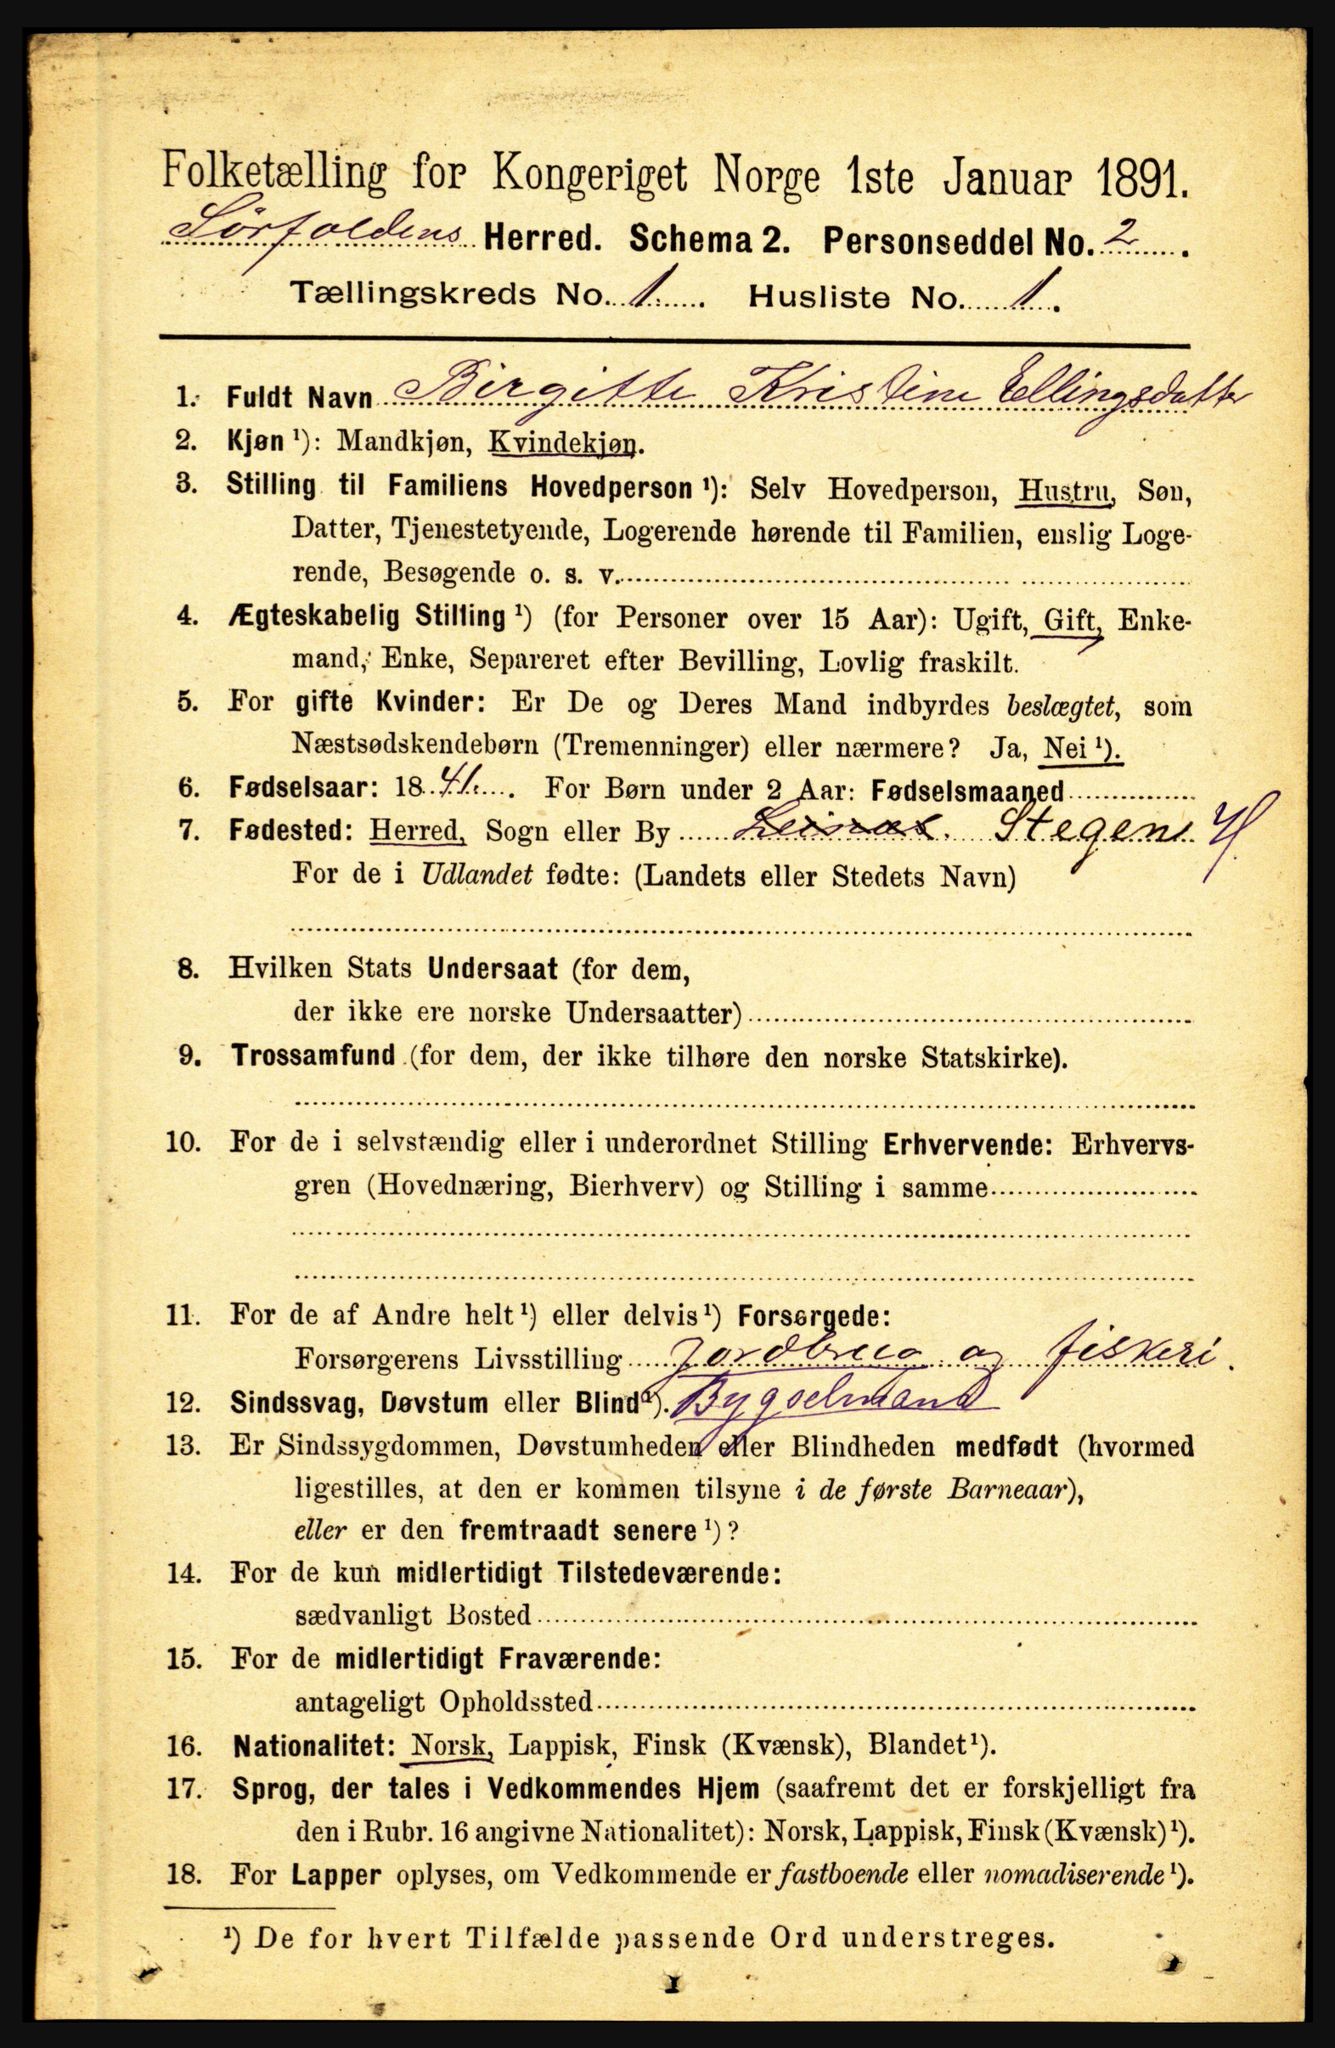 Folketælling for Kongeriget Norge 1ste Januar 1891.
Sörfoldens Herred. Schema 2. Personseddel No. 2.
Tællingskreds No. 1. Husliste No. 1.
1. Fuldt Navn Birgitte Kristine Ellingsdatter
2. Kjøn ¹): Mandkjøn, Kvindekjøn.
3. Stilling til Familiens Hovedperson ¹): Selv Hovedperson, Hustru, Søn,
Datter, Tjenestetyende, Logerende hørende til Familien, enslig Loge-
rende, Besøgende o. s. v.
4. Ægteskabelig Stilling ¹) (for Personer over 15 Aar): Ugift, Gift, Enke-
mand, Enke, Separeret efter Bevilling, Lovlig fraskilt.
5. For gifte Kvinder: Er De og Deres Mand indbyrdes beslægtet, som
Næstsødskendebørn (Tremenninger) eller nærmere? Ja, Nei ¹).
6. Fødselsaar: 1841. For Børn under 2 Aar: Fødselsmaaned
7. Fødested: Herred, Sogn eller By Leines. Stegens H
For de i Udlandet fødte: (Landets eller Stedets Navn)
8. Hvilken Stats Undersaat (for dem,
der ikke ere norske Undersaatter)
9. Trossamfund (for dem, der ikke tilhøre den norske Statskirke).
10. For de i selvstændig eller i underordnet Stilling Erhvervende: Erhvervs-
gren (Hovednæring, Bierhverv) og Stilling i samme
11. For de af Andre helt ¹) eller delvis ¹) Forsørgede:
Forsørgerens Livsstilling Jordbrug og fiskeri.
12. Sindssvag, Døvstum eller Blind ¹). Bygselmand
13. Er Sindssygdommen, Døvstumheden eller Blindheden medfødt (hvormed
ligestilles, at den er kommen tilsyne i de første Barneaar),
eller er den fremtraadt senere ¹)?
14. For de kun midlertidigt Tilstedeværende:
sædvanligt Bosted
15. For de midlertidigt Fraværende:
antageligt Opholdssted
16. Nationalitet: Norsk, Lappisk, Finsk (Kvænsk), Blandet ¹).
17. Sprog, der tales i Vedkommendes Hjem (saafremt det er forskjelligt fra
den i Rubr. 16 angivne Nationalitet): Norsk, Lappisk, Finsk (Kvænsk) ¹).
18. For Lapper oplyses, om Vedkommende er fastboende eller nomadiserende ¹).
¹) De for hvert Tilfælde passende Ord understreges.